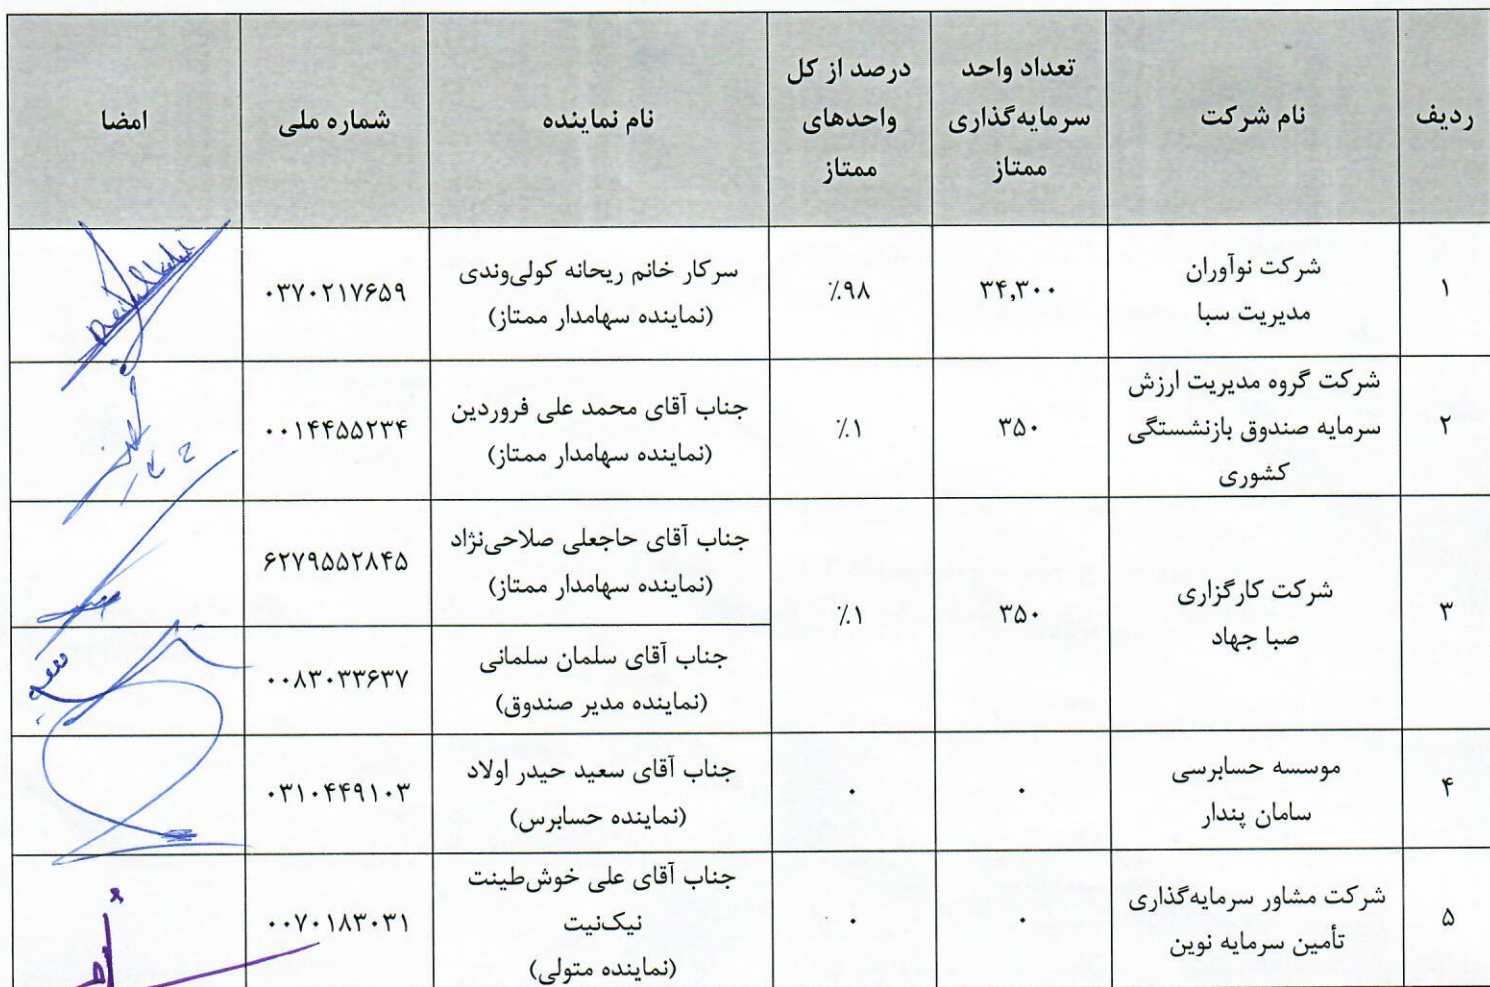 ردیف
نام شرکت
تعداد واحد
سرمایه‌گذاری
ممتاز
درصد از کل
واحدهای
ممتاز
نام نماینده
شماره ملی
امضا
۱
شرکت نوآوران
مدیریت سبا
۳۴,۳۰۰
٪۹۸
سرکار خانم ریحانه کولی‌وندی
(نماینده سهامدار ممتاز)
۰۳۷۰۲۱۷۶۵۹
۲
شرکت گروه مدیریت ارزش
سرمایه صندوق بازنشستگی
کشوری
۳۵۰
٪۱
جناب آقای محمد علی فروردین
(نماینده سهامدار ممتاز)
۰۰۱۴۴۵۵۲۳۴
۳
شرکت کارگزاری
صبا جهاد
۳۵۰
٪۱
جناب آقای حاجعلی صلاحی‌نژاد
(نماینده سهامدار ممتاز)
۶۲۷۹۵۵۲۸۴۵
جناب آقای سلمان سلمانی
(نماینده مدیر صندوق)
۰۰۸۳۰۳۳۶۳۷
۴
موسسه حسابرسی
سامان پندار
۰
۰
جناب آقای سعید حیدر اولاد
(نماینده حسابرس)
۰۳۱۰۴۴۹۱۰۳
۵
شرکت مشاور سرمایه‌گذاری
تأمین سرمایه نوین
۰
۰
جناب آقای علی خوش‌طینت
نیک‌نیت
(نماینده متولی)
۰۰۷۰۱۸۳۰۳۱